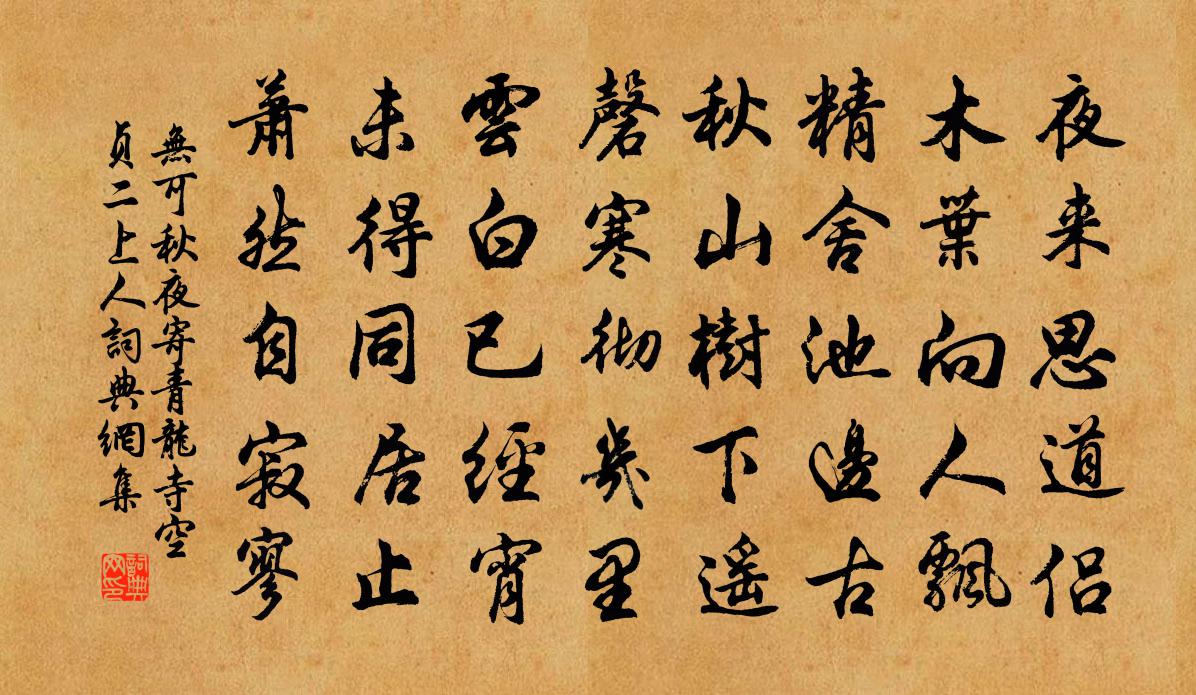 夜来思道侣
木葉向人飄
精舍池邊古
秋山樹下遥
磬寒彻幾里
雲白已經宵
未得同居止
蕭然自寂寥
無可秋夜寄青龍寺空
貞二上人詞典網集
詞典
网印